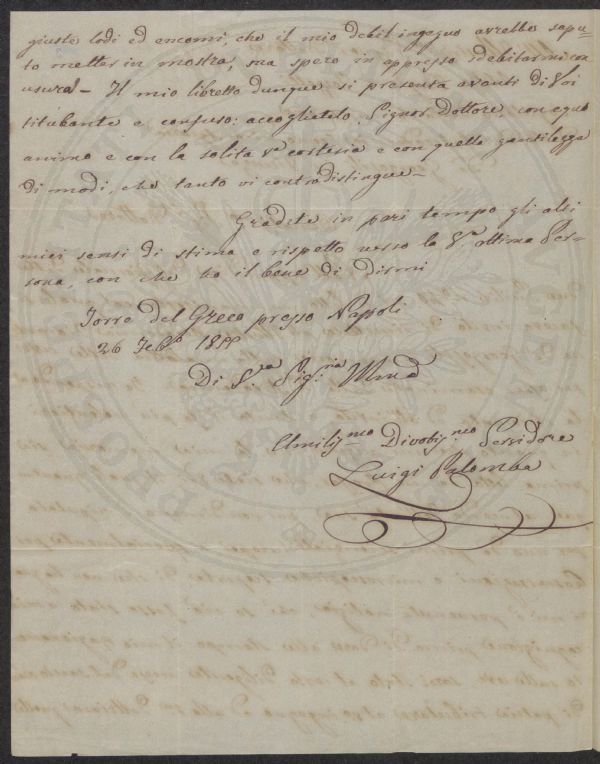 giuste lodi ed encomi, che il mio debil ingegno avrebbe sapu-
to mettere in mostra, ma spero in appresso sdebitarmi con
usura! — Il mio libretto dunque si presenta avanti di Voi
titubante e confuso: accoglietelo Signor Dottore, con equo
animo e con la solita Vª cortesia e con quella gentilezza
di modi, che tanto vi contradistingue —
Gradite in pari tempo gli alti
miei sensi di stima e rispetto verso la Vª ottima Per=
sona, con che ho il bene di dirmi
Torre del Greco presso Napoli
26 Feb.º
Di S.ª Sig.ria Illma
Umiliss.mo Divotiss.mo Servidore
Luigi Palomba